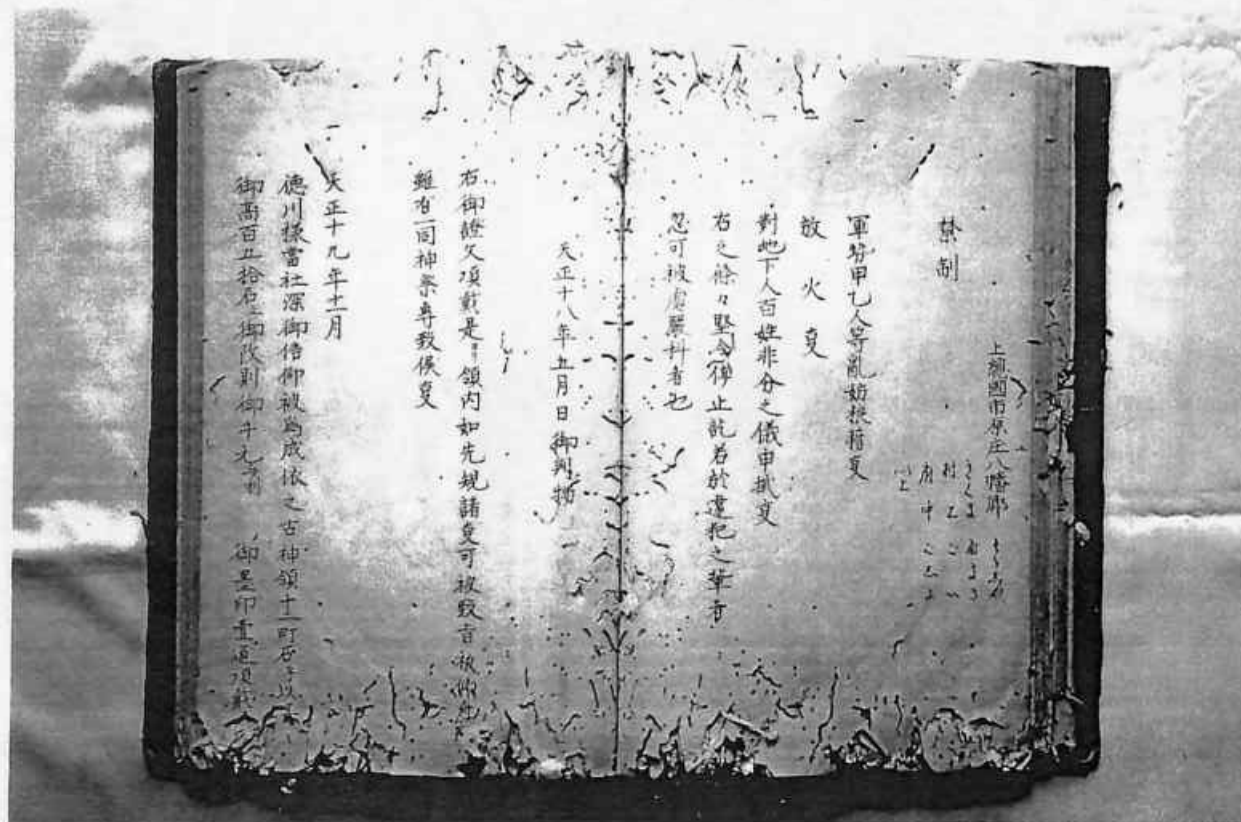 禁制
上総國市原庄八幡郷
府中
以上
軍勢甲乙人等亂妨狼藉叓
放火叓
對地下人百姓非分之儀申掛叓
右之條々堅令停止訖若於違犯之輩者
忽可被處嚴科者也
天正十八年五月日御判物
右御證文頂戴是ヨリ領内如先規諸叓可被致旨被仰
雖有一同神祭専致候叓
一
天正十九年十一月
徳川様當社深御信仰被為成依之古神領十二町
御高百五拾石御改則御 御墨印壹通頂戴